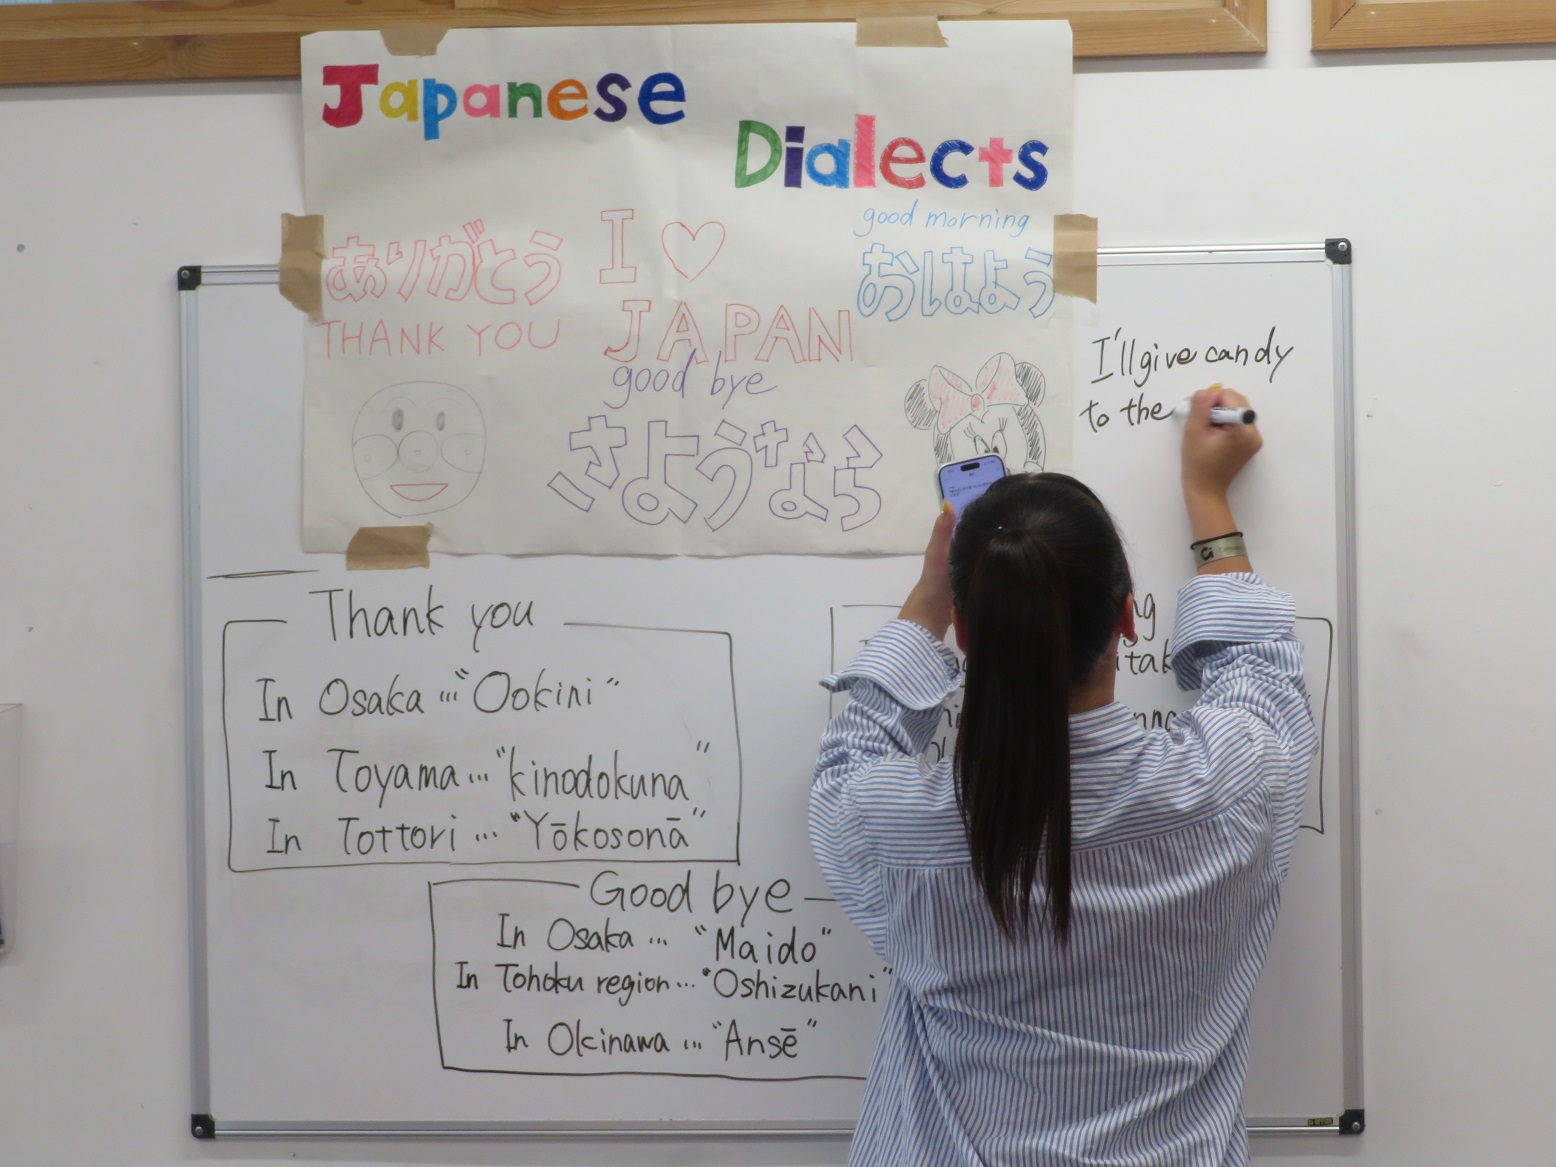 Japanese
Dialects
ありがとう
THANK YOU
I ♡
JAPAN
good morning
おはよう
good bye
さようなら
I'll give candy
to the
Thank you
In Osaka … "Ookini"
In Toyama … "kinodokuna"
In Tottori … "Yōkosonā"
Good bye
In Osaka … "Maido"
In Tohoku region … "Oshizukani"
In Okinawa … "Ansē"